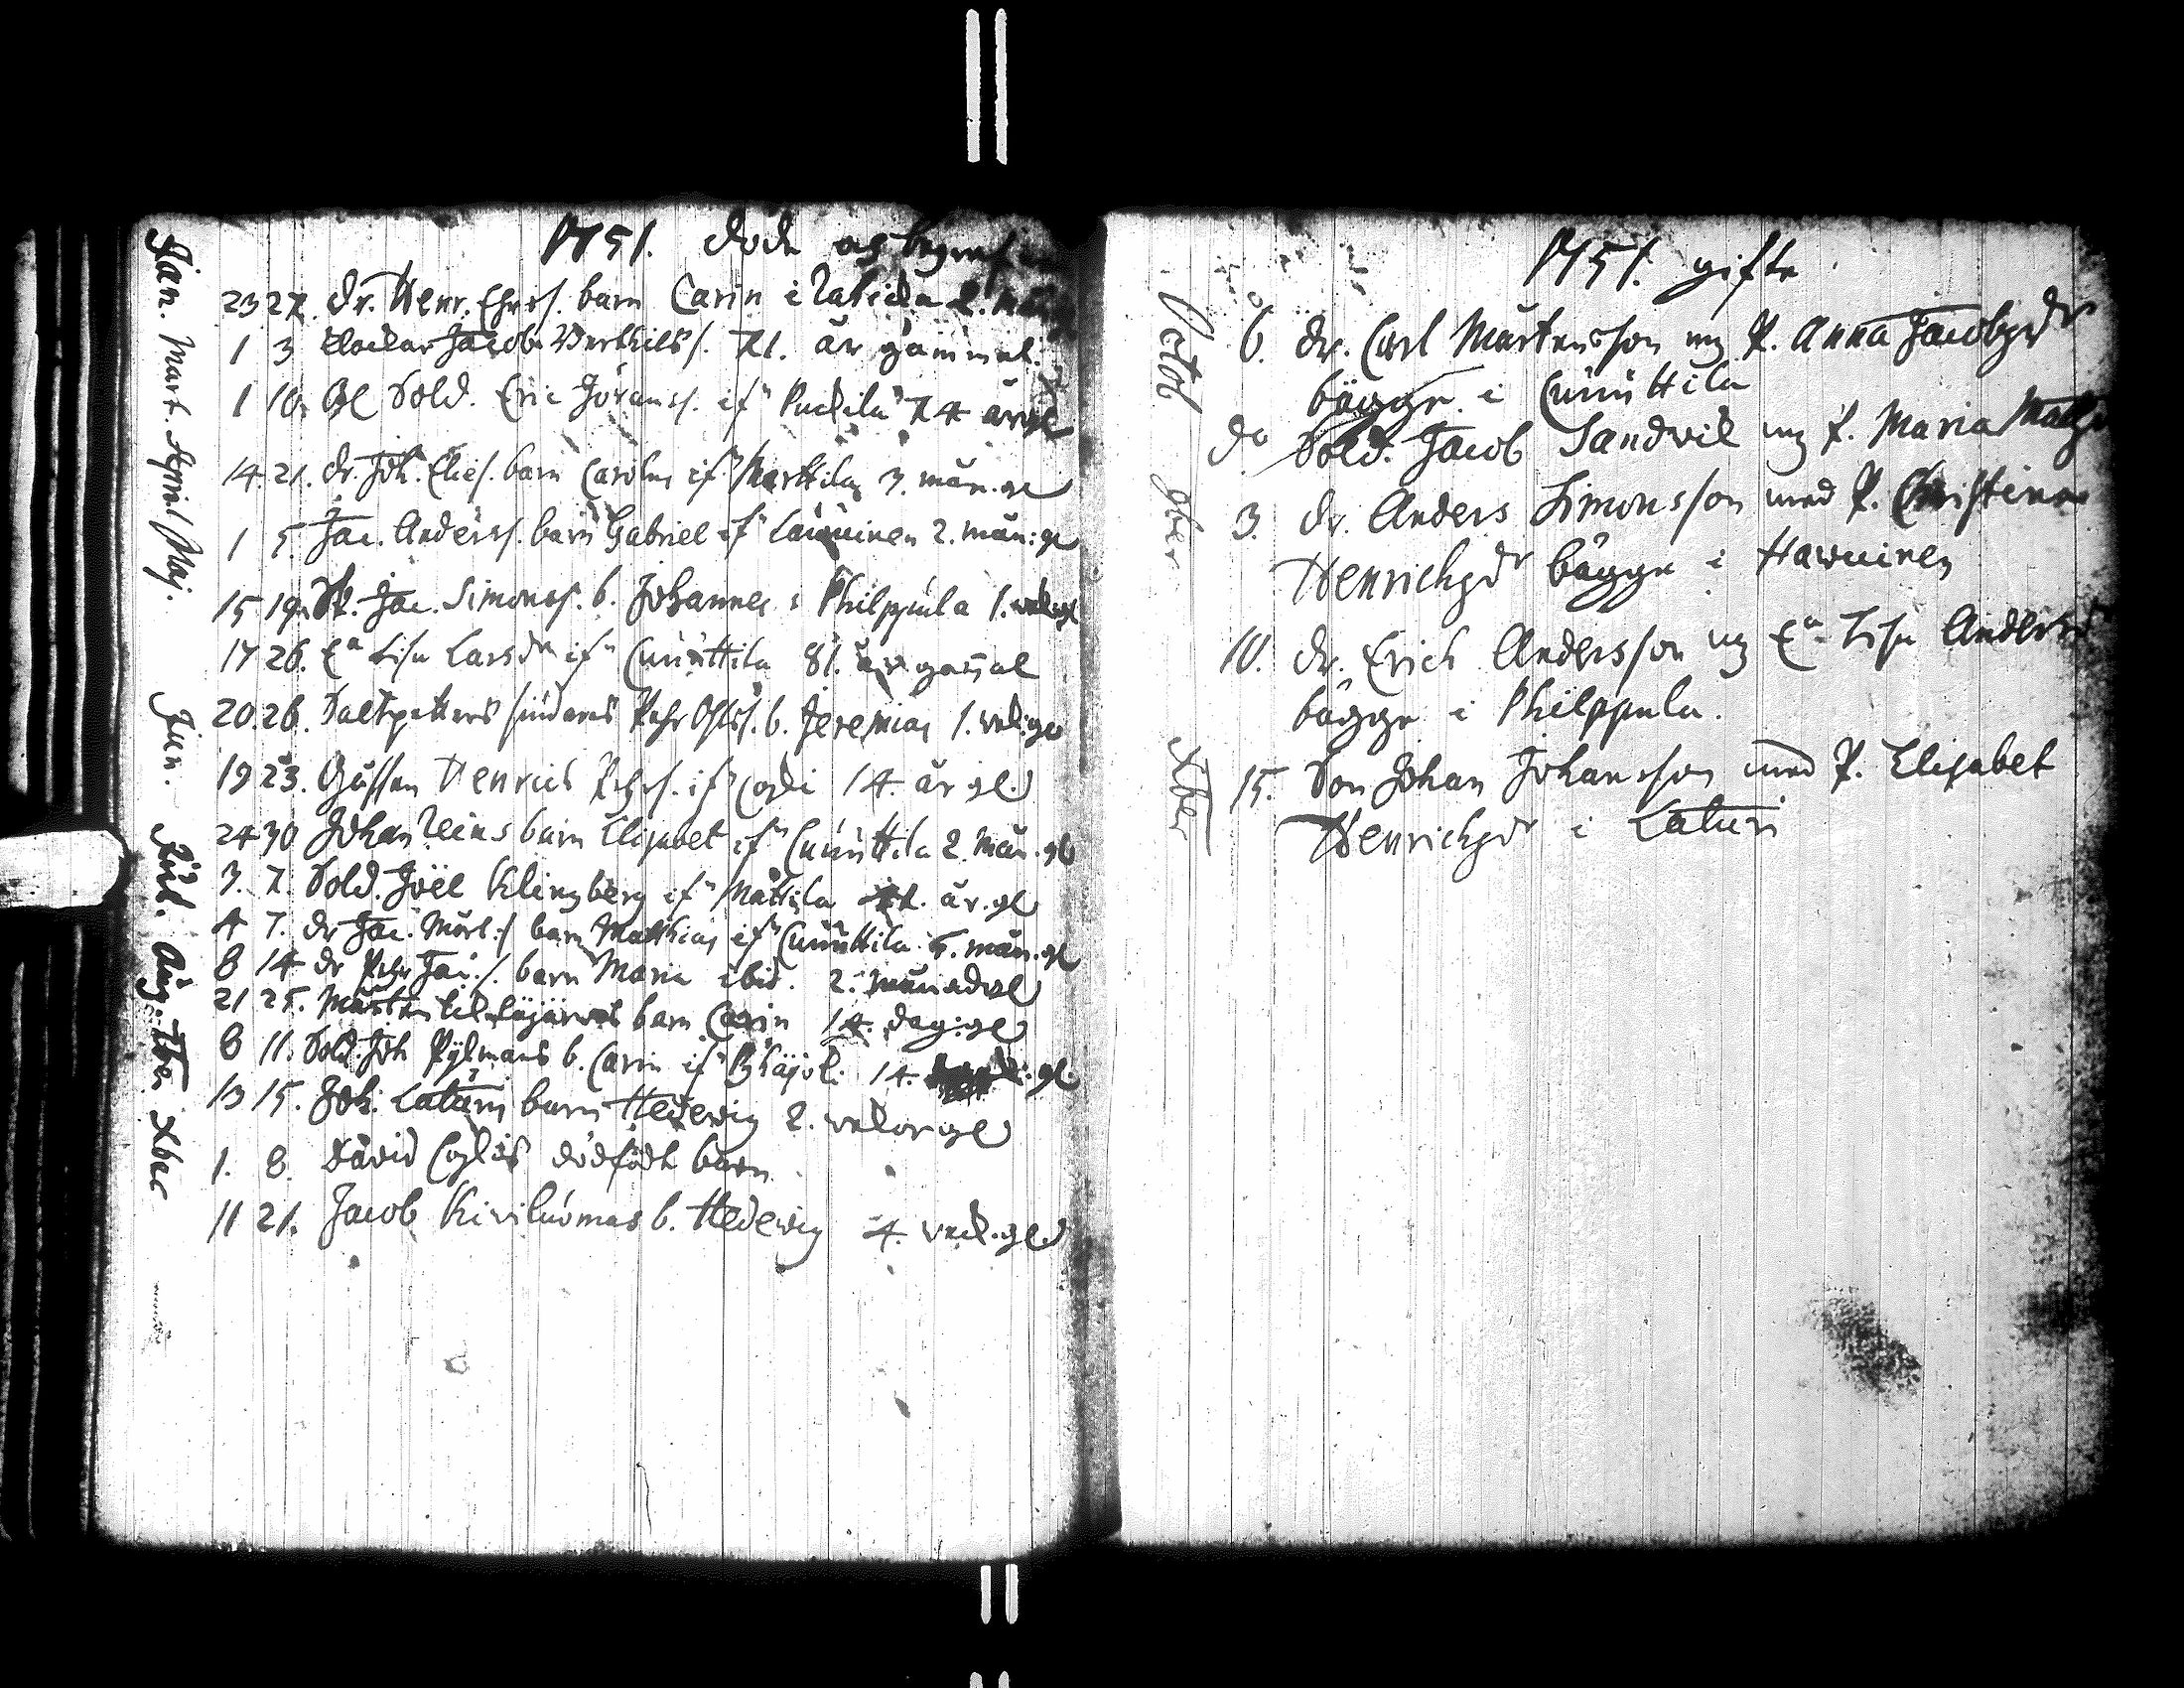 1751. döde og begrafne
Jan. Mart. April Maj. Jun. Jul. Aug. 7ber Xber
23 27. dr. Henr. Ehrss. barn Carin i
1 3 Clockar Jacob Berthilss. 71. år gammal.
1 10. Gl Sold. Eric Jöranss. if:n Puckila 74 år gl
14. 21. dr. Joh. Elies. barn Carolus if:n Marttila 3. mån. gl
1 5. Jac. Anderss. barn Gabriel if:n Lauuinen 2. mån: gl
15 19. Jac. Simonss. b. Johannes i Philppula 1. vek. gl
17 26. E:a Lisa Larsdr if:n Cunnttila 81. år gam̅al
20. 26. Saltpetters siudares Pehr Ohlss. b. Jeremias 1. vek. gl
19 23. Gossen Henrich Pehrs. if:n Cogli 14. år gl.
24 30 Johan Leins barn Elisabet if:n Cunnttila 2. mån. gl
3. 7. Sold. Joël Klingberg if:n Mattila år. gl
4 7. dr Jac. Mårt:s barn Matthias if:n Cunnttila 5. mån. gl
8 14 dr Pehr Jac:s. barn Maria ibid. 2. månad gl
21 25. Mårten barn Carin 14. dag: gl
8 11. Sold. Joh Pylmans b. Carin if:n 14. gl.
13 15. Joh. Laturi barn Hedewig 2. vekor gl
1. 8. David Coglis dödfödt barn
11 21. Jacob Kiviluomas b. Hedewig 4. vek. gl.
1751. gifte
Octob 9ber Xber
6. dr. Carl Mårtensson mz P. Anna Jacobzdr
bägge i Cunnttila
do Sold. Jacob Sandvik mz P. Maria
3. dr. Anders Simonsson med P. Christina
Henrichzdr bägge i Hawuinen
10. dr. Erich Andersson mz E:a Lisa Anders
bägge i Philppula.
15. Son Johan Johansson med P. Elisabet
Henrichzdr i Laturi